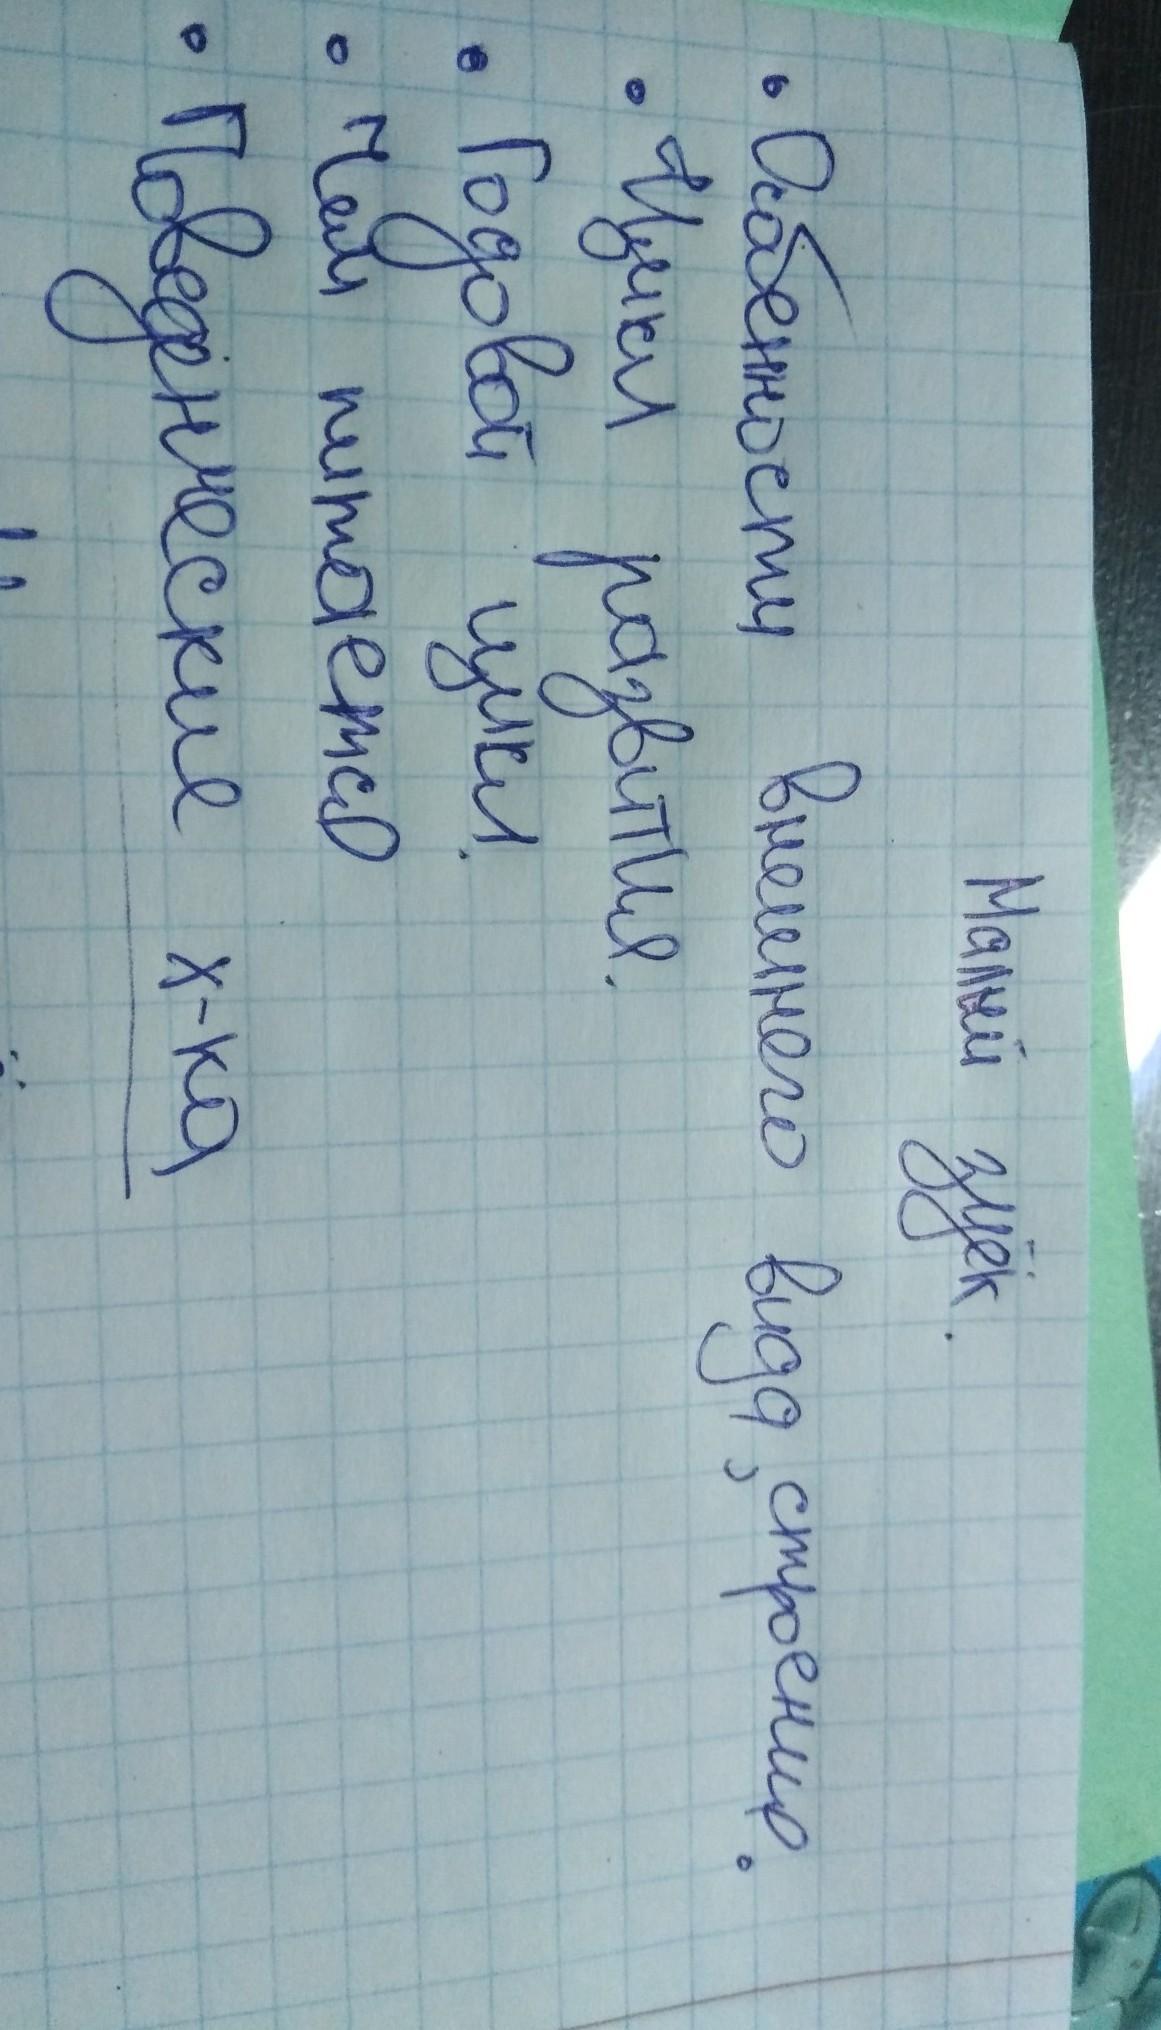 Малый зуёк.
• Особенности внешнего вида, строения.
• Цикл развития.
• Годовой цикл.
• Чем питается
• Поведенческие х-ка